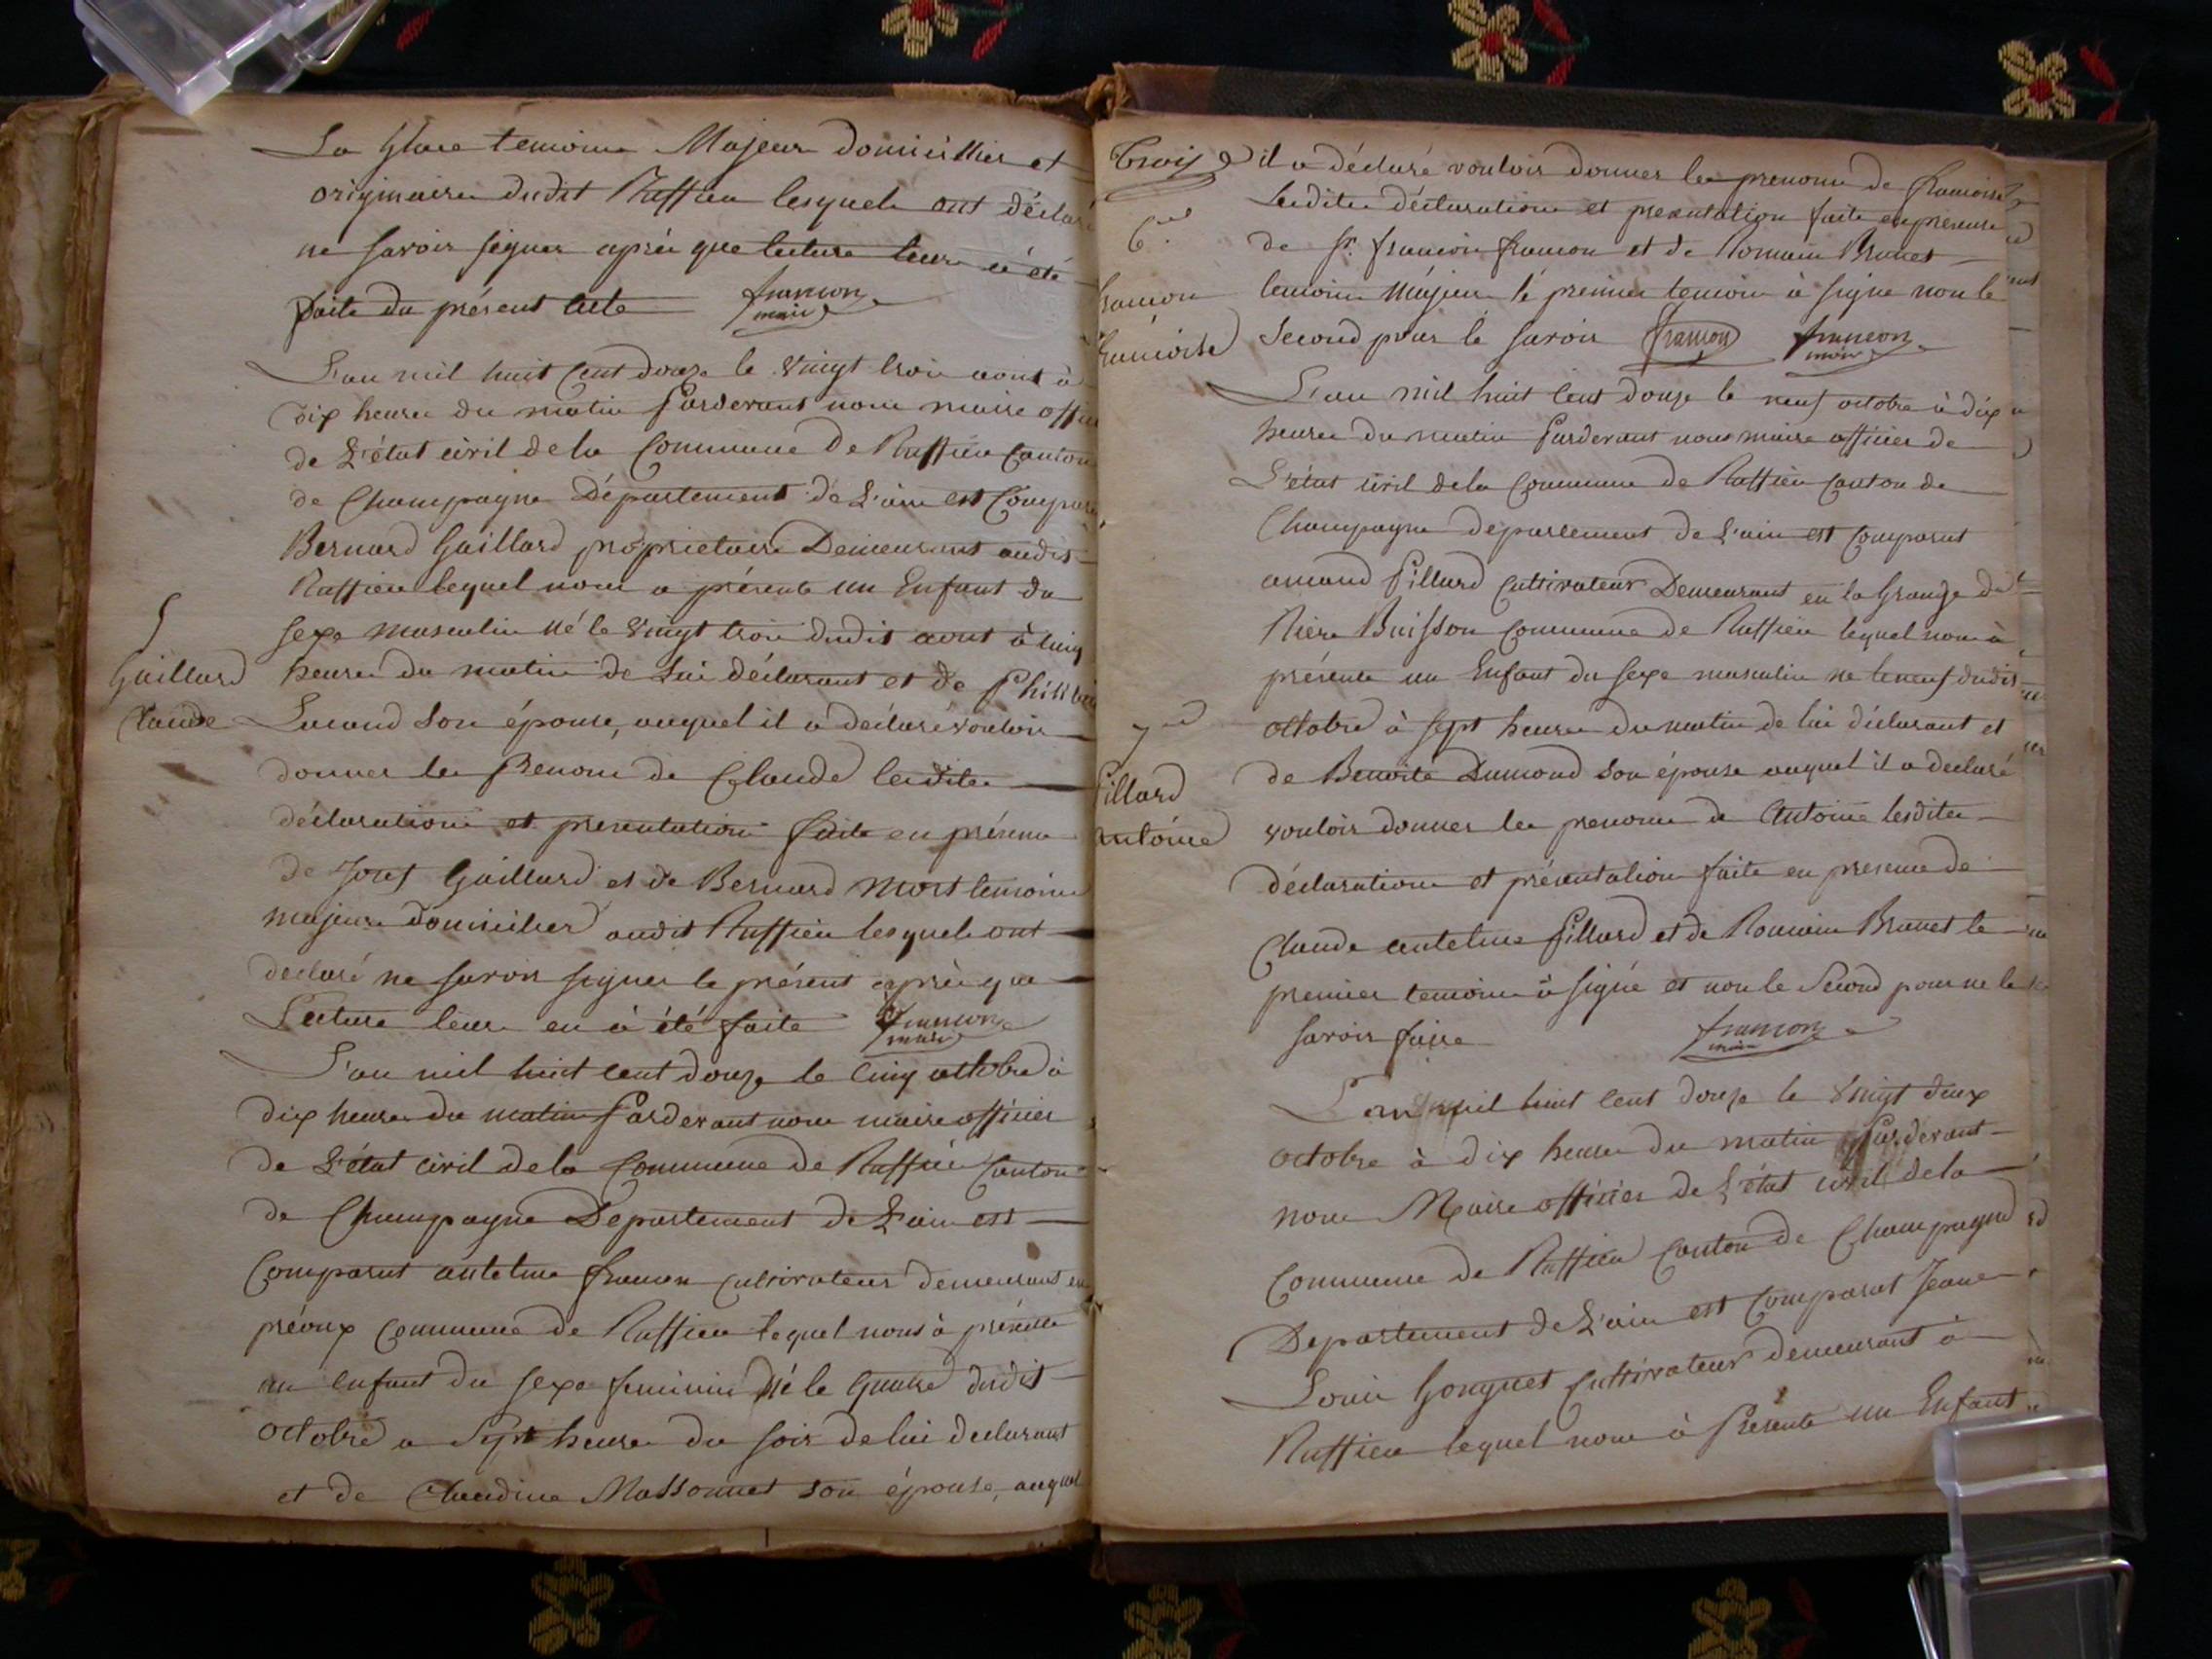 La Glace temoins Majeurs domicilliés et
originaires dudit Ruffieu lesquels ont déclaré
ne savoir signer aprés que lecture leurs a été
faite du présent acte francon
maire
L'an mil huit Cent douze le vingt trois aout à
dix heures du matin Pardevant nous maire offi
de L'état civil de la Commune de Ruffieu Canton
de Champagne Département de L'ain est Compar
Bernard Gaillard propriétaire Demeurant audit
Ruffieu lequel nous a présenté un Enfant du
5
sexe masculin né le vingt trois dudit aout à cinq
Gaillard
heures du matin de Lui déclarant et de
Claude
son épouse, auquel il a déclaré vouloir
donner les Prenoms de Claude lesdites
déclarations et presentations faite en présence
de Josef Gaillard et de Bernard Mort temoins
majeurs domiciliés audit Ruffieu lesquels ont
declaré ne savoir signer le présent aprés que
Lecture leurs en à été faite francon
maire
L'an mil huit cent douze le Cinq octobre à
dix heures du matin Pardevant nous maire officier
de L'état civil de la Commune de Ruffieu Canton
de Champagne Departement de L'ain est
Comparut antelme francon Cultivateur demeurant en
préoux Commune de Ruffieu lequel nous à présenté
un enfant du sexe feminin Né le Quatre dudit
octobre a Sept heures du soir de lui declarant
et de Claudine Massonnet son épouse, auquel
Trois
il a déclaré vouloir donner les prenoms de francoise
6
Lesdites déclarations et presentation faite en presence
de Sr. francois francon et de Romain Brunet
francon
temoins Majeurs le premier temoin à signe non le
francoise
Second pour le savoir francon francon
maire
L'an mil huit Cent douze le neuf octobre à dix
heures du matin Pardevant nous maire officier de
L'état civil de la Commune de Ruffieu Canton de
Champagne departement de L'ain est Comparut
amand Pillard Cultivateur Demeurant en la Grange de
Riere Buisson Commune de Ruffieu lequel nous à
présenté un Enfant du sexe masculin né le neuf dudit
7
octobre à sept heures du matin de lui déclarant et
Pillard
de Benoite Dumond son épouse auquel il a declaré
antoine
vouloir donner les prenoms de Antoine lesdites
déclarations et présentation faite en presence de
Claude antelme Pillard et de Romain Brunet le
premier temoins à signé et non le Second pour ne le
savoir faire francon
maire
L'an mil huit Cent douze le vingt deux
octobre à dix heures du matin Pardevant
nous Maire officier de L'état civil de la
Commune de Ruffieu Canton de Champagne
Departement de L'ain est Comparut Jean
Louis Gonguet Cultivateur demeurant à
Ruffieu lequel nous à Présenté un Enfant